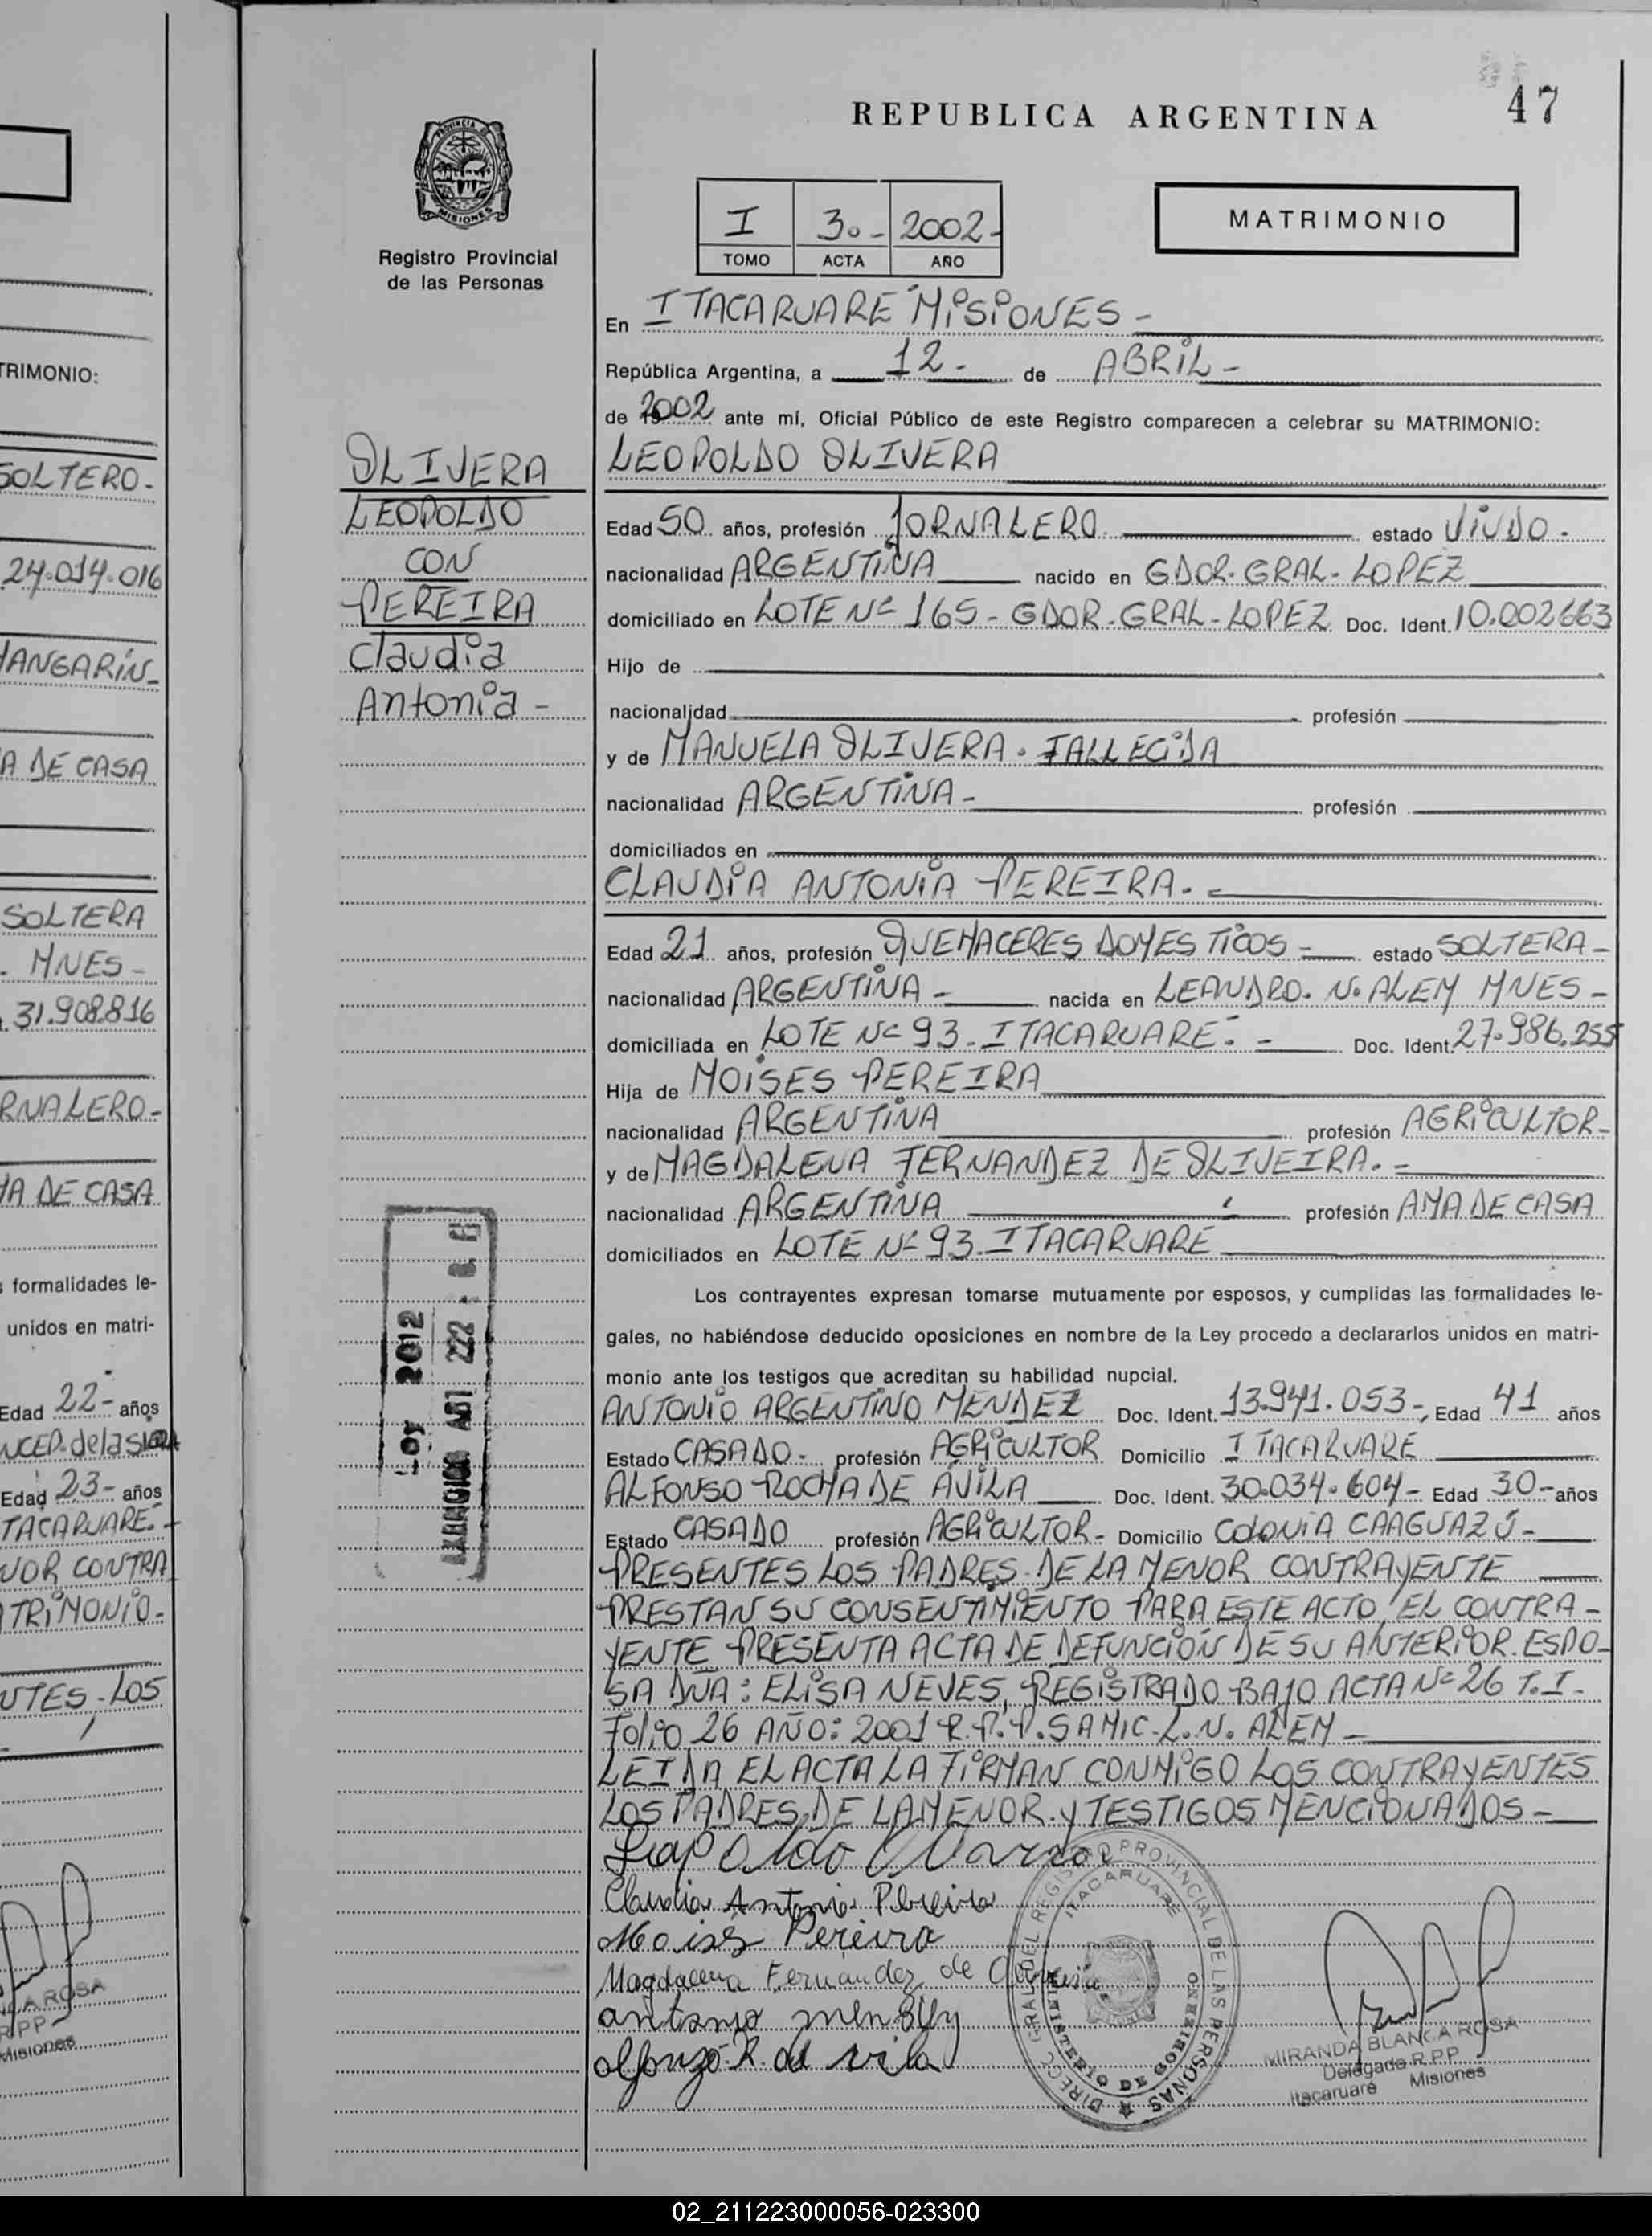 47
REPUBLICA ARGENTINA
PROVINCIA DE
MISIONES
Registro Provincial
de las Personas
I 3.- 2002-
TOMO ACTA AÑO
MATRIMONIO
En ITACARUARE MISIONES-
República Argentina, a 12- de ABRIL-
de 2002 ante mí, Oficial Público de este Registro comparecen a celebrar su MATRIMONIO:
OLIVERA
LEOPOLDO
CON
PEREIRA
Claudia
Antonia-
LEOPOLDO OLIVERA
Edad 50 años, profesión JORNALERO estado VIUDO.
nacionalidad ARGENTINA nacido en GDOR-GRAL-LOPEZ
domiciliado en LOTE Nº 165-GDOR-GRAL-LOPEZ Doc. Ident. 10.002663
Hijo de
nacionalidad profesión
y de MANUELA OLIVERA. FALLECIDA
nacionalidad ARGENTINA- profesión
domiciliados en
CLAUDIA ANTONIA PEREIRA.-
Edad 21 años, profesión QUEHACERES DOMESTICOS- estado SOLTERA-
nacionalidad ARGENTINA- nacida en LEANDRO. N. ALEM MNES-
domiciliada en LOTE Nº 93-ITACARUARE.- Doc. Ident. 27.986.255
Hija de MOISES PEREIRA
nacionalidad ARGENTINA profesión AGRICULTOR-
y de MAGDALENA FERNANDEZ DE OLIVEIRA.-
nacionalidad ARGENTINA profesión AMA DE CASA
domiciliados en LOTE Nº 93-ITACARUARE
Los contrayentes expresan tomarse mutuamente por esposos, y cumplidas las formalidades le-
gales, no habiéndose deducido oposiciones en nombre de la Ley procedo a declararlos unidos en matri-
monio ante los testigos que acreditan su habilidad nupcial.
ANTONIO ARGENTINO MENDEZ Doc. Ident. 13.941.053-, Edad 41 años
Estado CASADO- profesión AGRICULTOR Domicilio ITACARUARE
ALFONSO ROCHA DE ÁVILA Doc. Ident. 30.034.604- Edad 30- años
Estado CASADO profesión AGRICULTOR- Domicilio COLONIA CAAGUAZÚ-
PRESENTES LOS PADRES DE LA MENOR CONTRAYENTE
PRESTAN SU CONSENTIMIENTO PARA ESTE ACTO, EL CONTRA-
YENTE PRESENTA ACTA DE DEFUNCIÓN DE SU ANTERIOR ESPO-
SA DÑA: ELISA NEVES, REGISTRADO BAJO ACTA Nº 26 T.I.
Folio 26 AÑO: 2001 R.P.P. SAMIC-L.N. ALEM-
LEIDA EL ACTA LA FIRMAN CONMIGO LOS CONTRAYENTES
LOS PADRES DE LA MENOR Y TESTIGOS MENCIONADOS-
Claudia Antonia Pereira
Moises Pereira
Magdalena Fernandez de
alfonzo R. de vila
DIRECC. GRAL DEL REGISTRO PROVINCIAL DE LAS PERSONAS
ITACARUARE
MINISTERIO DE GOBIERNO
MIRANDA BLANCA ROSA
Delegada R.P.P.
Itacaruaré Misiones
Ley 2012
ART 222
TRIMONIO:
SOLTERO-
24.014.016
MANGARÍN-
A DE CASA
SOLTERA
- MNES-
31.908.816
RNALERO-
MA DE CASA
formalidades le-
unidos en matri-
Edad 22- años
Edad 23- años
TACARUARE.-
NOR CONTRA
TRIMONIO-
NTES-LOS
CA ROSA
R.P.P
Misiones
02_211223000056-023300